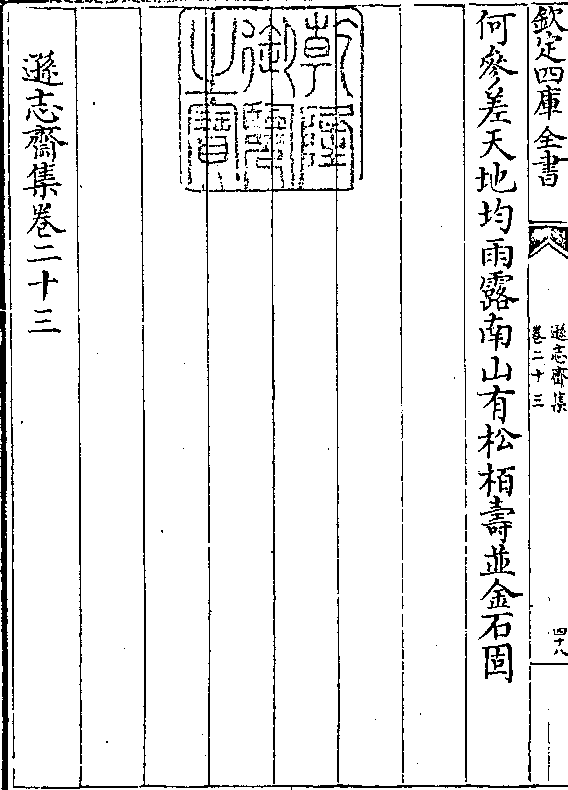 欽定四庫全書
遜志齋集
卷二十三
四十八
何參差天地均雨露南山有松栢壽並金石固
乾隆
御覽
之寶
遜志齋集卷二十三